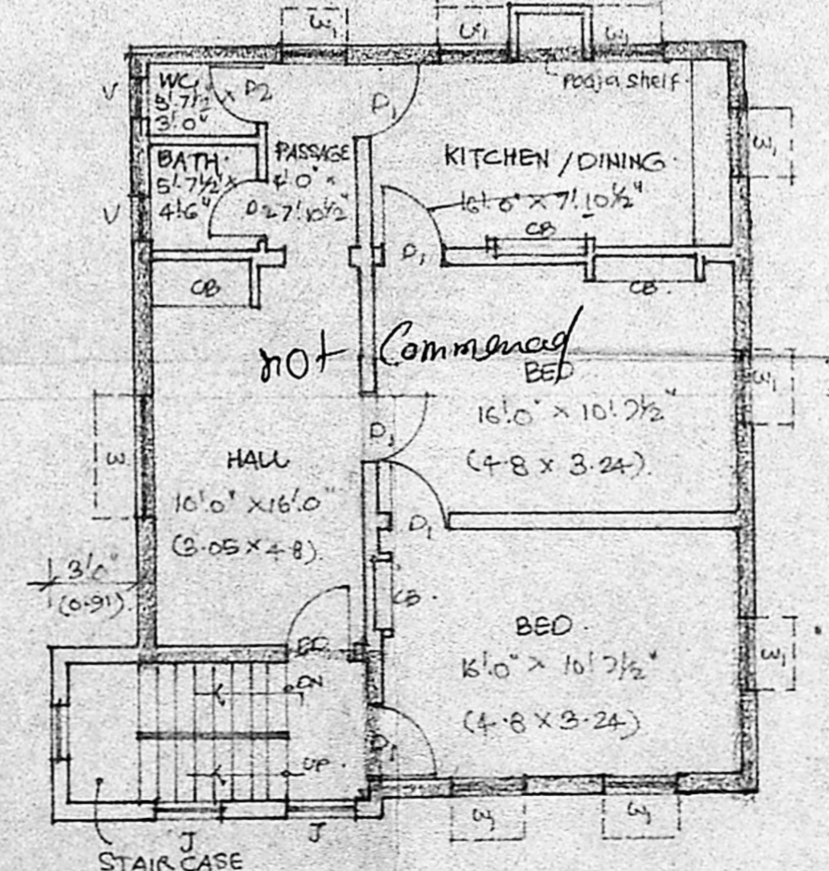 W1
W1
W1
WC
5'.7½" x
3'.0"
V
D2
D1
Pooja Shelf.
W1
BATH.
5'.7½" x
4'.6"
V
D2
PASSAGE
4'.0" x
7'.10½"
KITCHEN / DINING.
16'.0" x 7'.10½"
CB
D1
CB
CB.
not Commenced
BED
16'.0" x 10'.7½"
(4.8 x 3.24).
W1
D1
W
HALL
10'.0" x 16'.0"
(3.05 x 4.8).
D1
3'.0"
(0.91).
CB.
BED.
16'.0" x 10'.7½"
(4.8 x 3.24)
W1
DN
UP.
D1
J
J
W1
W1
STAIR CASE